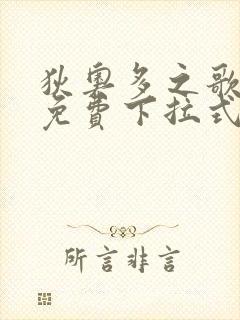 狄奧多之歌
免費下拉式
所言非言